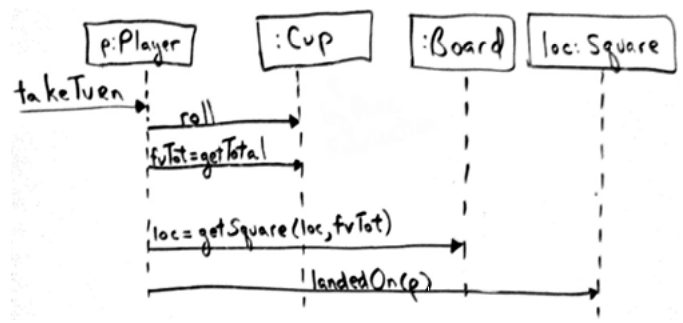 p:Player
:Cup
:Board
loc: Square
takeTurn
roll
fvTot=getTotal
loc=getSquare(loc,fvTot)
landedOn(p)